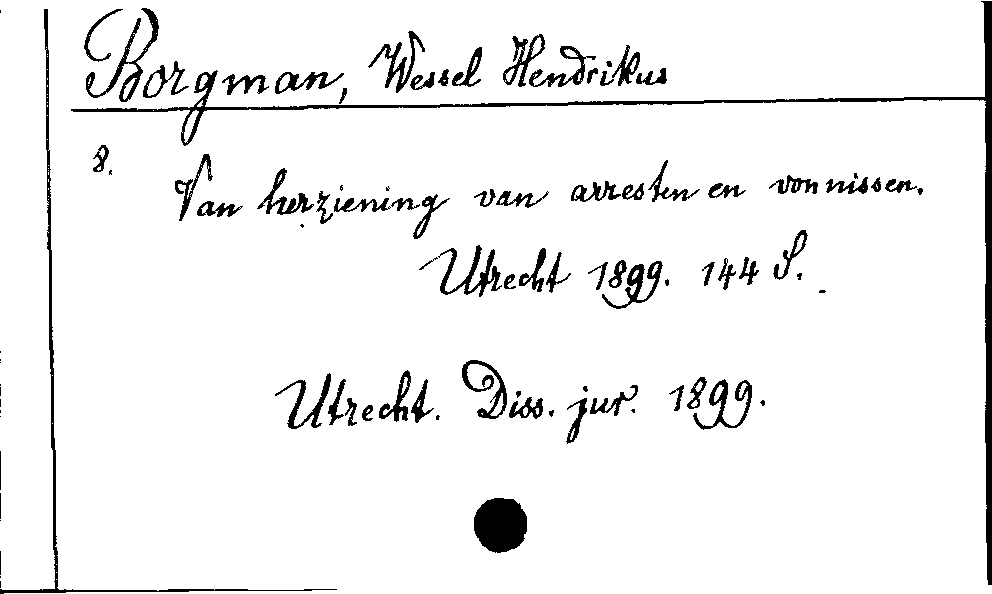 Borgman, Wessel Hendrikus
8.
Van herziening van arresten en vonnissen.
Utrecht 1899. 144 S.
Utrecht. Diss. jur. 1899.